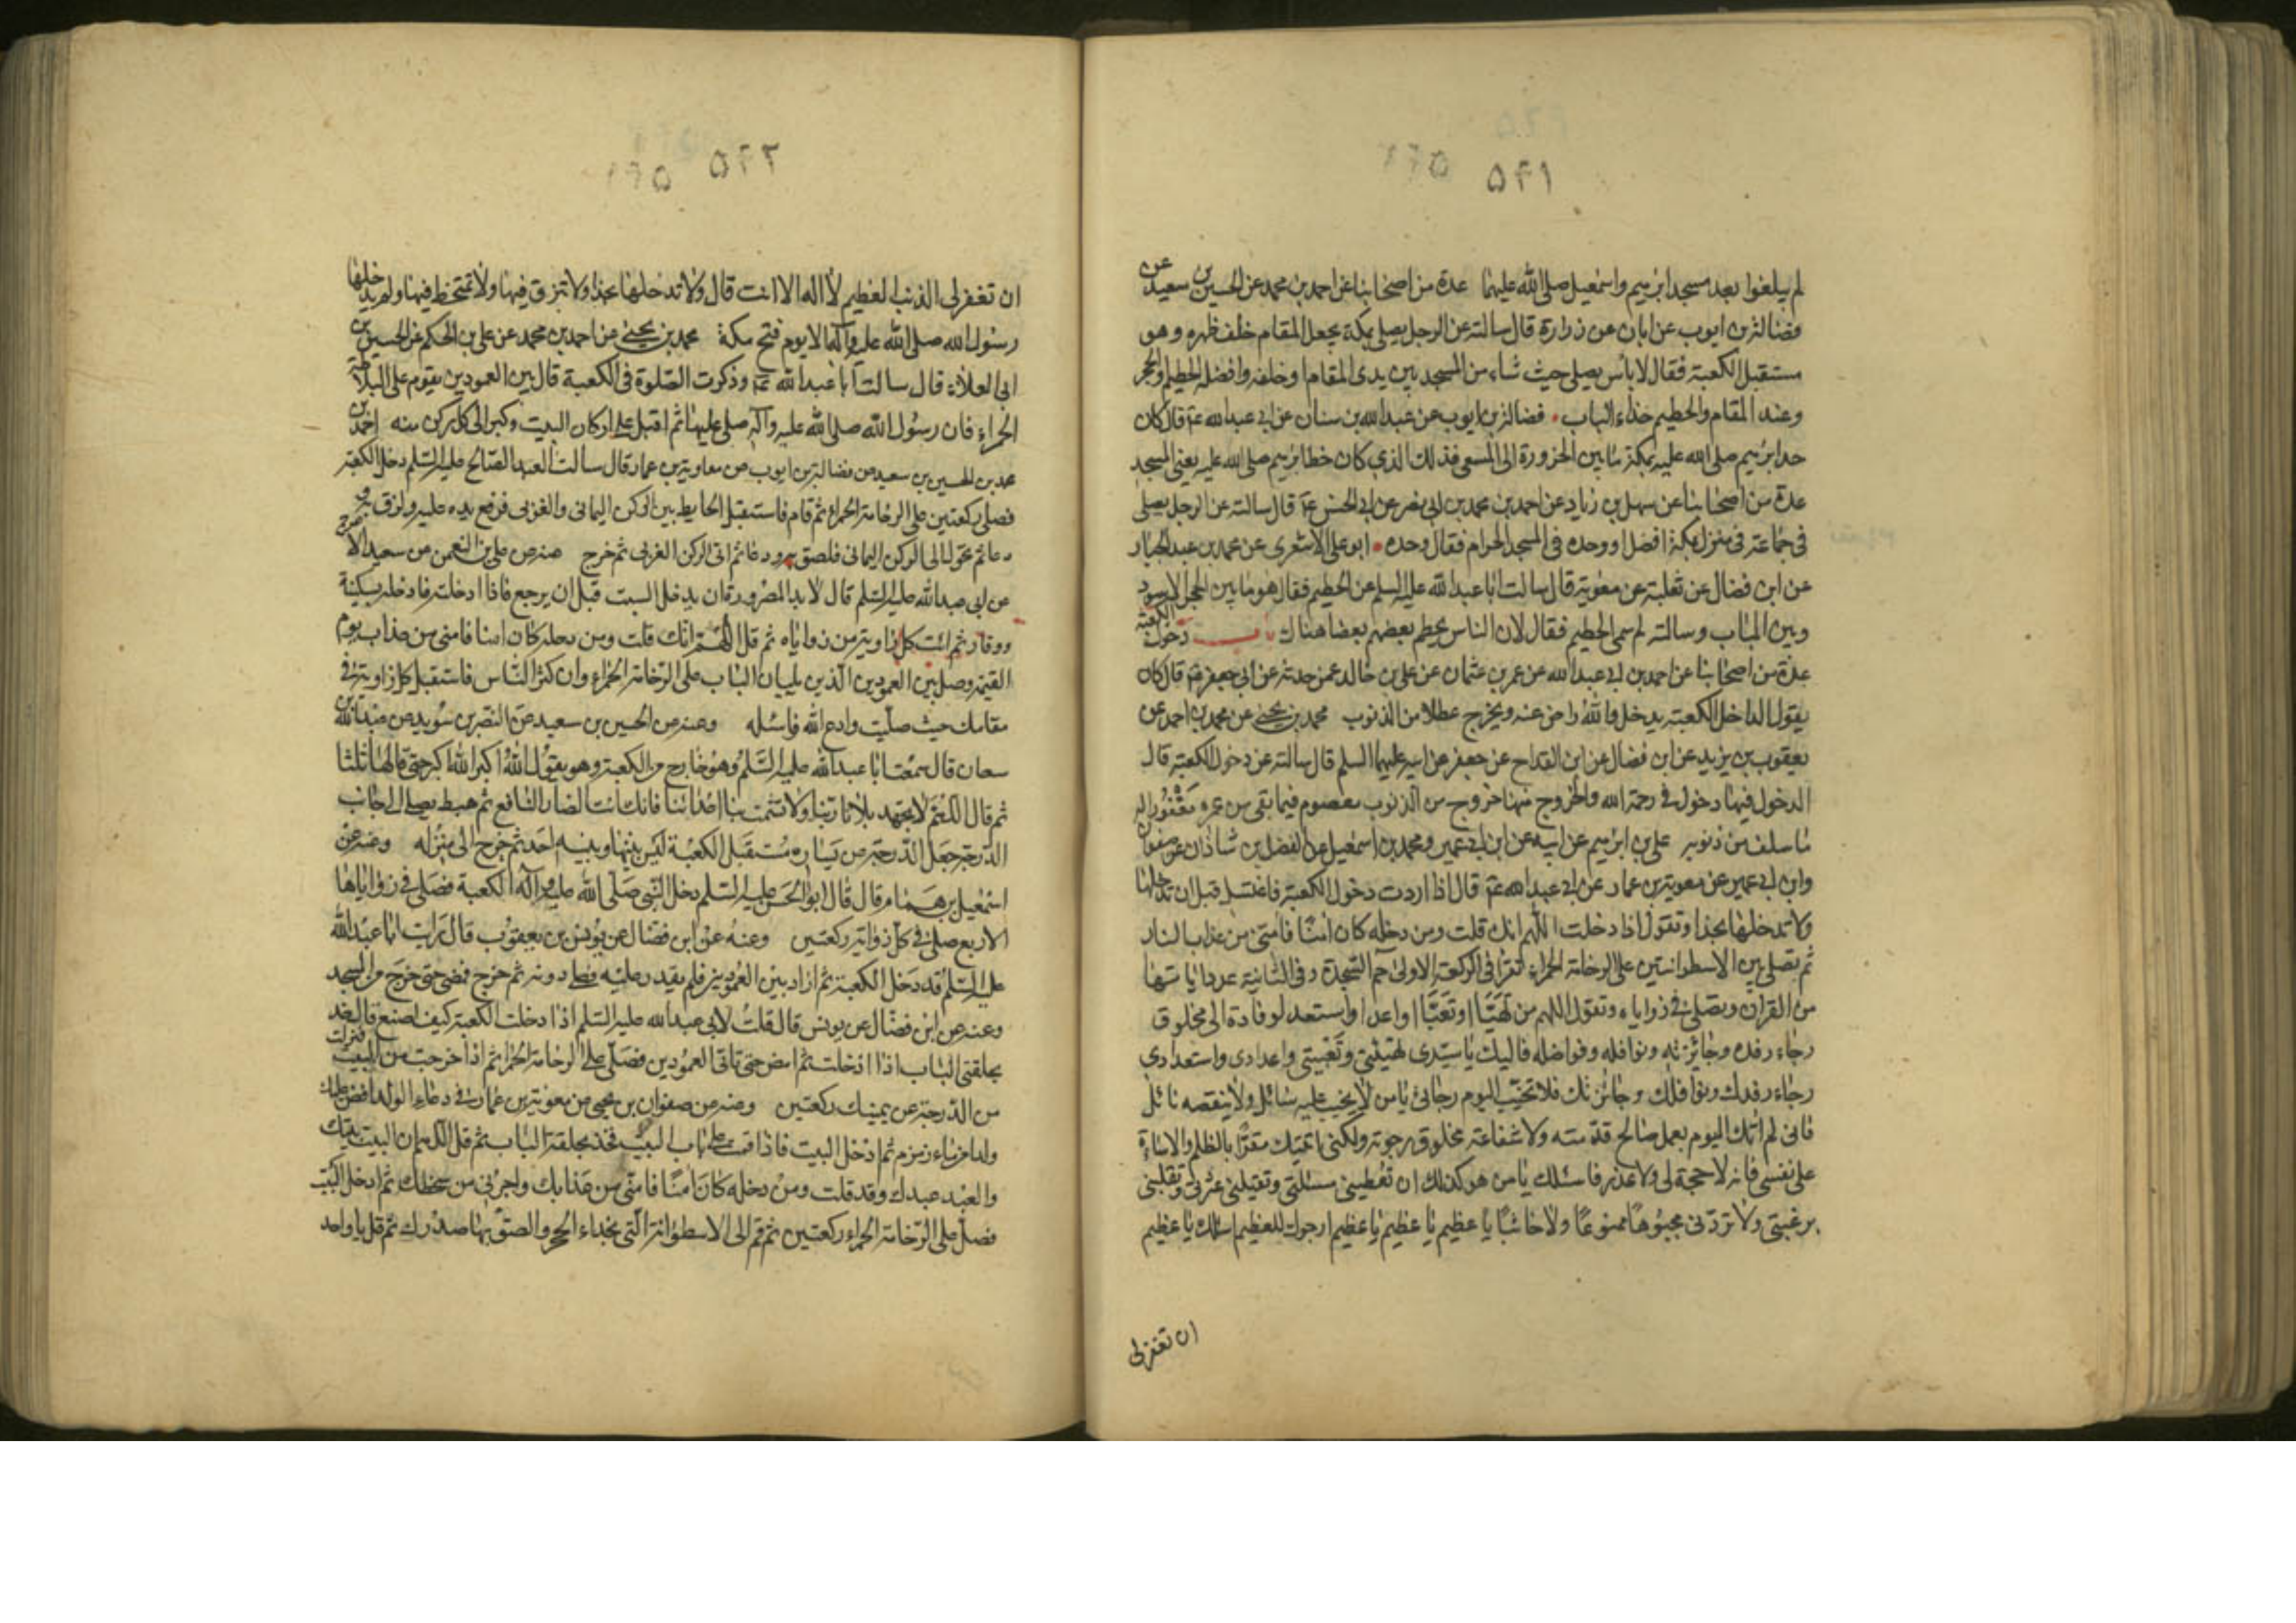 ۵۶۱
لم يبلغوا بعد مسجد ابرهيم واسمعيل صلى الله عليهما عدة من اصحابنا عن احمد بن محمد عن الحسين بن سعيد عن
فضالة بن ايوب عن ابان عن زرارة قال سالته عن الرجل يصلى بمكة يجعل المقام خلف ظهره وهو
مستقبل الكعبة فقال لا باس يصلى حيث شاء من المسجد بين يدى المقام او خلفه وافضله الحطيم والحجر
وعند المقام والحطيم حذاء الباب فضالة بن ايوب عن عبد الله بن سنان عن ابى عبد الله ع قال كان
حد ابرهيم صلى الله عليه بمكة ما بين الحزورة الى المسعى فذلك الذى كان خط ابرهيم صلى الله عليه يعنى المسجد
عدة من اصحابنا عن سهل بن زياد عن احمد بن محمد بن ابى نصر عن ابى الحسن ع قال سالته عن الرجل يصلى
فى جماعة فى منزله بمكة افضل او وحده فى المسجد الحرام فقال وحده ابو على الاشعرى عن محمد بن عبد الجبار
عن ابن فضال عن ثعلبة عن معوية قال سالت ابا عبد الله عليه السلم عن الحطيم فقال هو ما بين الحجر الاسود
وبين الباب وسالته لم سمى الحطيم فقال لان الناس يحطم بعضهم بعضا هناك باب دخول الكعبة
عدة من اصحابنا عن احمد بن ابى عبد الله عن عمر بن عثمان عن على بن خالد عمن حدثه عن ابى جعفر ع قال كان
يقول الداخل الكعبة يدخل والله راض عنه ويخرج عطلا من الذنوب محمد بن يحيى عن محمد بن احمد عن
يعقوب بن يزيد عن ابن فضال عن ابن القداح عن جعفر عن ابيه عليهما السلم قال سالته عن دخول الكعبة قال
الدخول فيها دخول فى رحمة الله والخروج منها خروج من الذنوب معصوم فيما بقى من عمره مغفور له
ما سلف من ذنوبه على بن ابرهيم عن ابيه عن ابن ابى عمير ومحمد بن اسمعيل عن الفضل بن شاذان عن صفوان
وابن ابى عمير عن معوية بن عمار عن ابى عبد الله ع قال اذا اردت دخول الكعبة فاغتسل قبل ان تدخلها
ولا تدخلها بحذاء وتقول اذا دخلت اللهم انك قلت ومن دخله كان امنا فامنى من عذاب النار
ثم تصلى بين الاسطوانتين على الرخامة الحمراء تقرا فى الركعة الاولى حم السجدة وفى الثانية عدد اياتها
من القران وتصلى فى زواياه وتقول اللهم من تهيا او تعبا او اعد او استعد لوفادة الى مخلوق
رجاء رفده وجائزته ونوافله وفواضله فاليك يا سيدى تهيئتى وتعبيتى واعدادى واستعدادى
رجاء رفدك ونوافلك وجائزتك فلا تخيب اليوم رجائى يا من لا يخيب عليه سائل ولا ينقصه نائل
فانى لم اتك اليوم بعمل صالح قدمته ولا شفاعة مخلوق رجوته ولكنى اتيتك مقرا بالظلم والاساءة
على نفسى فانه لا حجة لى ولا عذر فاسئلك يا من هو كذلك ان تعطينى مسئلتى وتقيلنى عثرتى وتقلبنى
برغبتى ولا تردنى مجبوها ممنوعا ولا خائبا يا عظيم يا عظيم يا عظيم ارجوك للعظيم اسئلك يا عظيم
ان تغفر لى
۵۶۲
ان تغفر لى الذنب العظيم لا اله الا انت قال ولا تدخلها بحذاء ولا تبزق فيها ولا تمتخط فيها ولم يدخلها
رسول الله صلى الله عليه وآله الا يوم فتح مكة محمد بن يحيى عن احمد بن محمد عن على بن الحكم عن الحسين بن
ابى العلاء قال سالت ابا عبد الله ع وذكرت الصلوة فى الكعبة قال بين العمودين يقوم على البلاطة
الحمراء فان رسول الله صلى الله عليه وآله صلى عليها ثم اقبل على اركان البيت وكبر الى كل ركن منه احمد بن
محمد بن الحسين بن سعيد عن فضالة بن ايوب عن معاوية بن عمار قال سالت العبد الصالح عليه السلم دخل الكعبة
فصلى ركعتين على الرخامة الحمراء ثم قام فاستقبل الحايط بين الركن اليمانى والغربى فرفع يده عليه ولزق به و
دعا ثم تحول الى الركن اليمانى فلصق به ودعا ثم اتى الركن الغربى ثم خرج عنه عن على بن النعمن عن سعيد الاعرج
عن ابى عبد الله عليه السلم قال لا بد للصرورة ان يدخل البيت قبل ان يرجع فاذا دخلته فادخله بسكينة
ووقار ثم ائت كل زاوية من زواياه ثم قل اللهم انك قلت ومن دخله كان امنا فامنى من عذاب يوم
القيمة وصل بين العمودين الذين يليان الباب على الرخامة الحمراء وان كثر الناس فاستقبل كل زاوية فى
مقامك حيث صليت وادع الله واسئله وعنه عن الحسين بن سعيد عن النضر بن سويد عن عبد الله بن
سنان قال سمعت ابا عبد الله عليه السلم وهو خارج من الكعبة وهو يقول الله اكبر الله اكبر حتى قالها ثلثا
ثم قال اللهم لا تجهد بلاءنا ربنا ولا تشمت بنا اعدائنا فانك انت الضار النافع ثم هبط يصلى الى جانب
الدرجة جعل الدرجة عن يساره مستقبل الكعبة ليس بينها وبينه احد ثم خرج الى منزله وعنه عن
اسمعيل بن همام قال قال ابو الحسن عليه السلم دخل النبى صلى الله عليه وآله الكعبة فصلى فى زواياها
الاربع صلى فى كل زاوية ركعتين وعنه عن ابن فضال عن يونس بن يعقوب قال رايت ابا عبد الله
عليه السلم قد دخل الكعبة ثم اراد بين العمودين فلم يقدر عليه فصلى دونه ثم خرج فمضى حتى خرج من المسجد
وعنه عن ابن فضال عن يونس قال قلت لابى عبد الله عليه السلم اذا دخلت الكعبة كيف اصنع قال خذ
بحلقتى الباب اذا دخلت ثم امض حتى تاتى العمودين فصل على الرخامة الحمراء ثم اذا خرجت من البيت فنزلت
من الدرجة عن يمينك ركعتين وعنه عن صفوان بن يحيى عن معوية بن عمار فى دعاء الولد افض عليك
دلوا من ماء زمزم ثم ادخل البيت فاذا قمت على باب البيت فخذ بحلقة الباب ثم قل اللهم ان البيت بيتك
والعبد عبدك وقد قلت ومن دخله كان امنا فامنى من عذابك واجرنى من سخطك ثم ادخل البيت
فصل على الرخامة الحمراء ركعتين ثم قم الى الاسطوانة التى بحذاء الحجر والصق بها صدرك ثم قل يا واحد